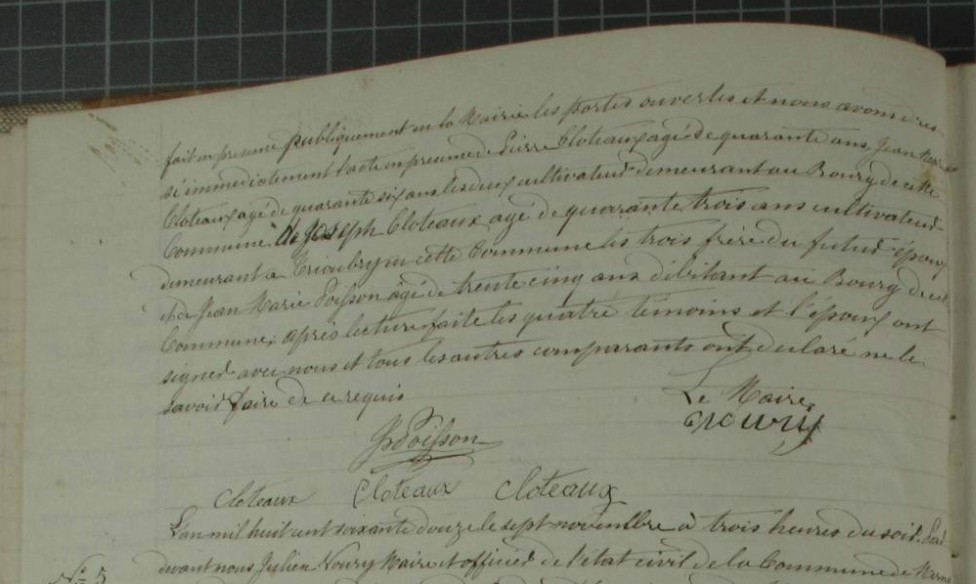 fait en presence publiquement en la Mairie les portes ouvertes et nous avons dres-
sé immediatement l'acte en presence de Pierre Cloteaux agé de quarante ans, Jean Marie
Cloteaux agé de quarante six ans les deux cultivateurs demeurant au Bourg de cette
Commune, de Joseph Cloteaux agé de quarante trois ans cultivateur
demeurant a en cette Commune les trois frère du futur époux
et de Jean Marie Poisson âgé de trente cinq ans débitant au Bourg de cette
Commune; après lecture faite les quatre témoins et l'époux ont
signer avec nous et tous les autres comparants ont declaré ne le
savoir faire de ce requis
Le Maire
Noury
Poisson
Cloteaux Cloteaux Cloteaux
L'an mil huit cent soixante douze le sept novembre à trois heures du soir. Par
devant nous Julien Noury Maire et officier de l'état civil de la Commune de
N° 5